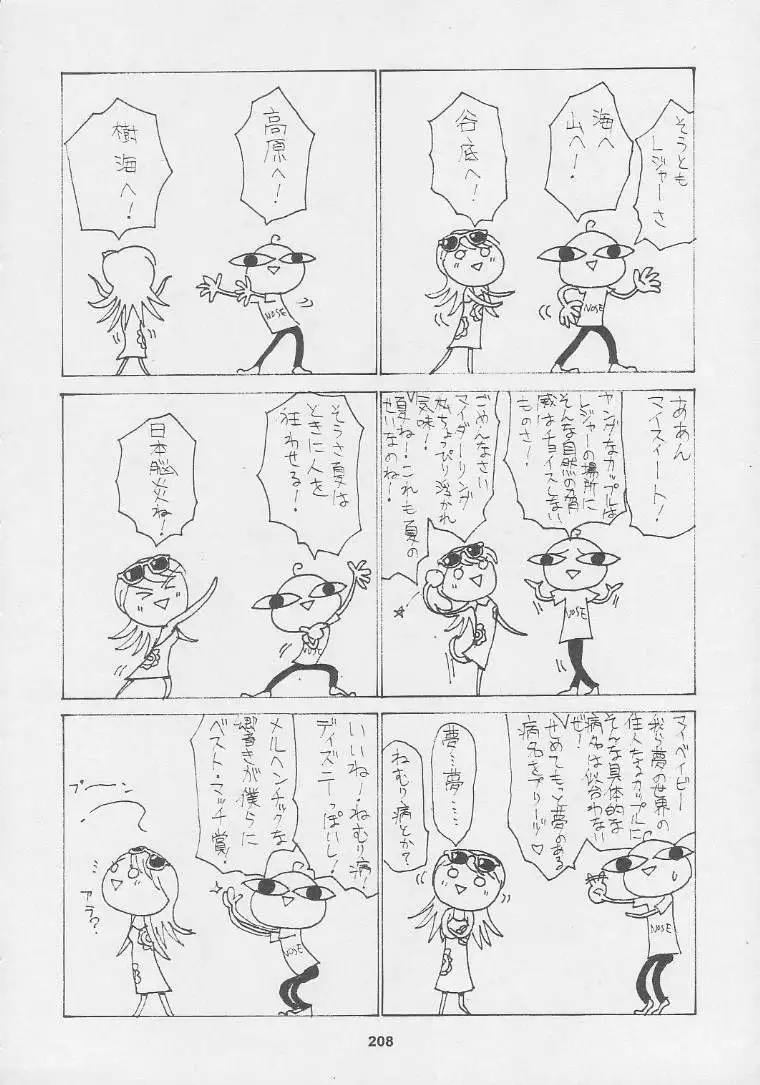 そうとも
レジャーさ
海へ
山へ!
谷底へ!
NOSE
高原へ!
樹海へ!
NOSE
ああん
マイスィート!
ヤングなカップルは
レジャーの場所に
そんな自然の脅
威はチョイスしない
ものさ!
ごめんなさい
マイダーリング
私ちょっぴり浮かれ
気味!
夏ね!これも夏の
せいなのね!
NOSE
そうさ夏は
ときに人を
狂わせる!
日本脳炎ね!
NOSE
マイベイビー
我ら夢の世界の
住人たるカップルに
そんな具体的な
病名は似合わない
ぜ!
せめてもっと夢のある
病名をプリーヅ♡
夢…夢……
ねむり病とか?
NOSE
いいねー!ねむり病!
ディズニーっぽいし!
メルヘンチックな
響きが僕らに
ベスト・マッチ賞!
プーーン
アラ?
NOSE
208